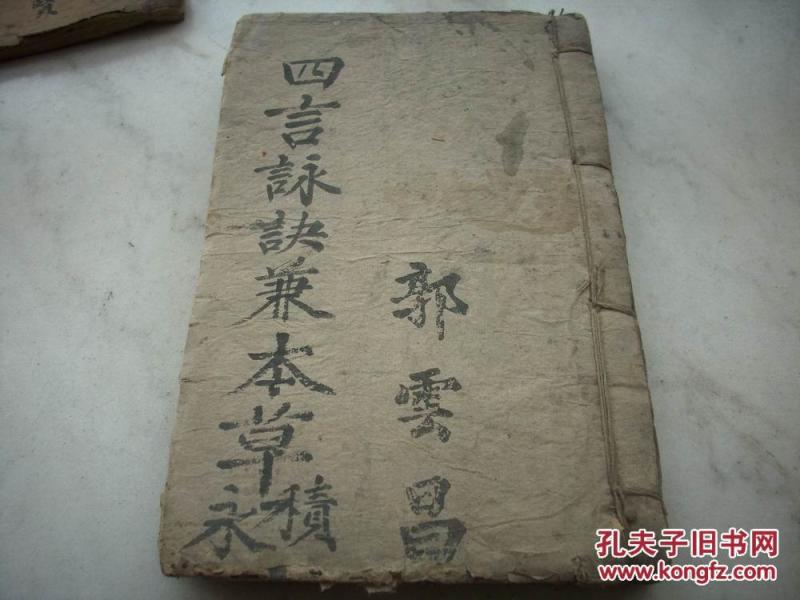 郭雲昌
四言詠訣兼本草
積永
孔夫子旧书网
www.kongfz.com